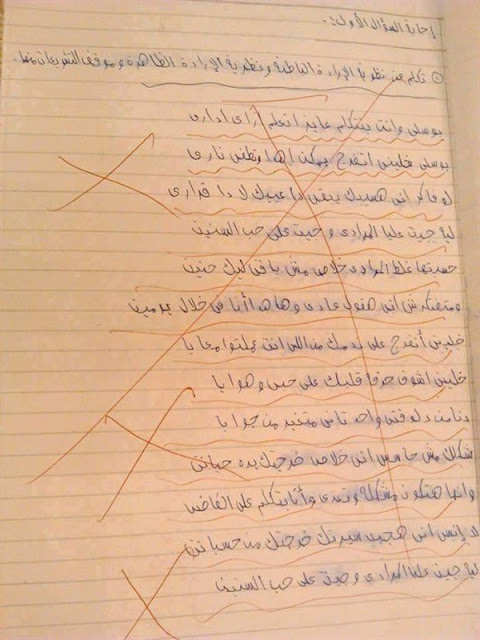 إجابة السؤال الأول:
① تكلم عن نظرية الإرادة الباطنة ونظرية الإرادة الظاهرة وموقف التشريعات منها.
بوسلى وانت بتتكلم عايز اتعلم ازاى ادارى
بوسلى خلينى اتفرج يمكن اهدا وتطفى نارى
لو فاكر انى هسيبك يبقى دا عيبك لا دا قرارى
ليه جيت عليا المرادى وجيت على حب السنين
حسبتها غلط المرادى خلاص مش باقى ليك حنين
ومتفتكرش انى هقول عادى وهاهدا أنا فى خلال يومين
خلينى أتفرج على ندمك من اللى انت عملتوا معايا
خلينى اشوف حرقة قلبك على حبى وهوايا
دنا من دلوقتى واحد تانى متغير من جوايا
شكلك مش حاسس انى خلاص خرجتك بره حياتى
وانها هتكون مشكلة وتعدى وأنا بتكلم على الفاضى
لا إنسى انى هجيب سيرتك خرجتك من حسباتى
ليه جيت عليا المرادى وجيت على حب السنين